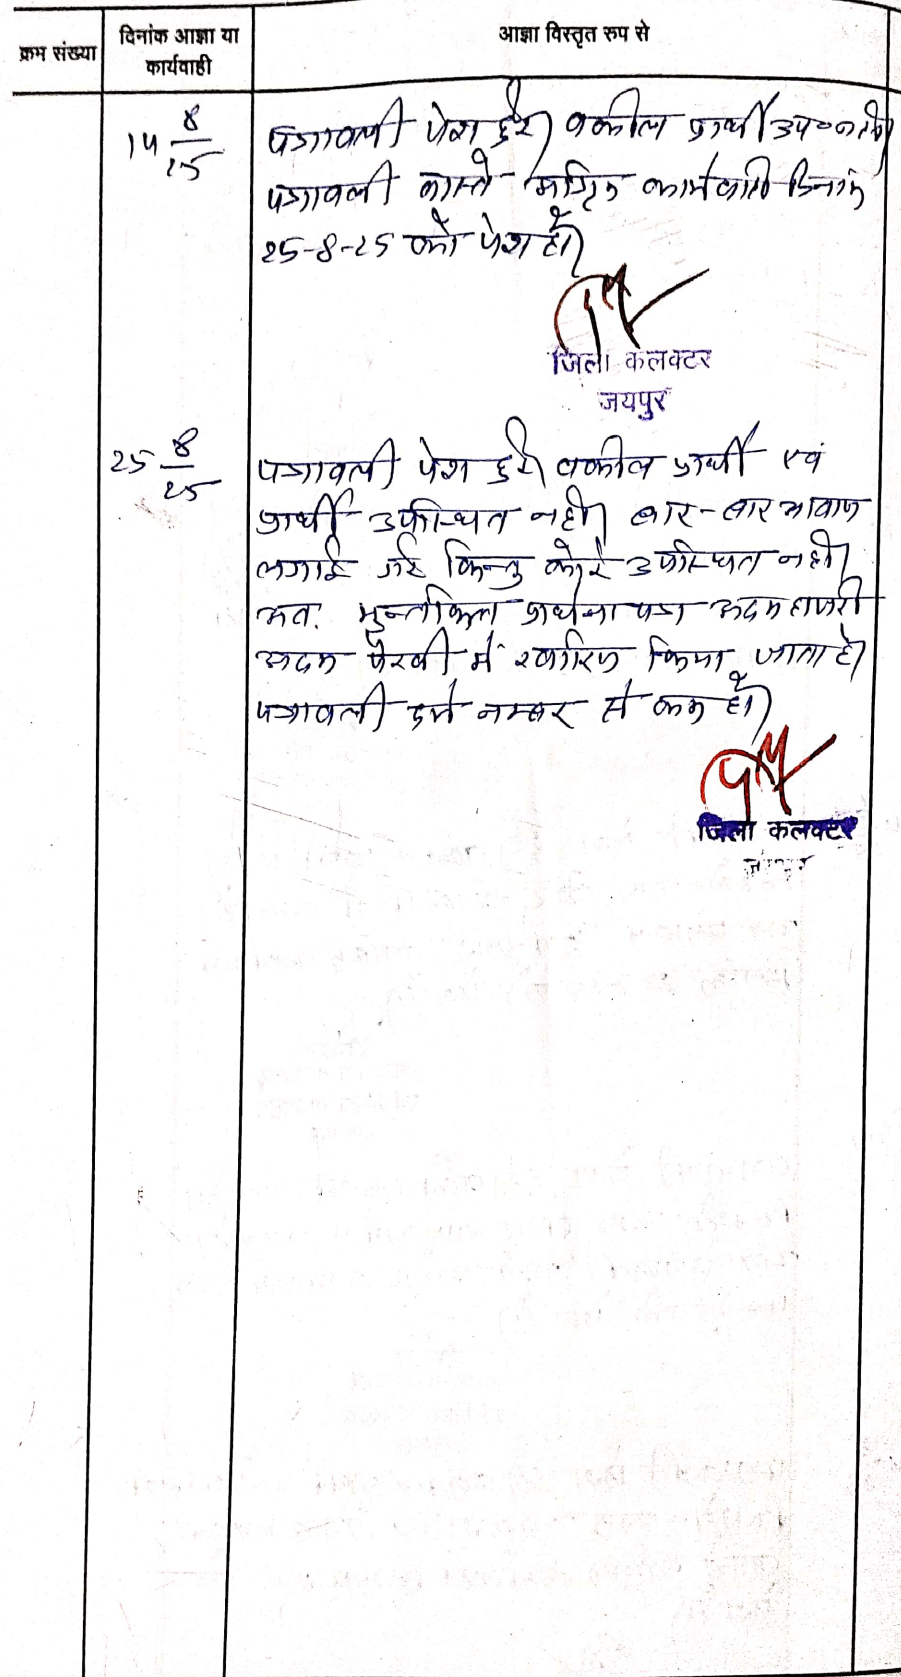 क्रम संख्या
दिनांक आज्ञा या
कार्यवाही
आज्ञा विस्तृत रुप से
14 8/25
पत्रावली पेश हुई। वकील प्रार्थी उप० नही।
पत्रावली वास्ते अग्रिम कार्यवाही दिनांक
25-8-25 को पेश हो।
जिला कलक्टर
जयपुर
25 8/25
पत्रावली पेश हुई। वकील प्रार्थी एवं
प्रार्थी उपस्थित नही। बार-बार आवाज
लगाई गई किन्तु कोई उपस्थित नही।
अत. मुन्तकिल प्रार्थना पत्र अदम हाजरी
अदम पैरवी में खारिज किया जाता है।
पत्रावली दर्ज नम्बर से कम हो।
जिला कलक्टर
जयपुर